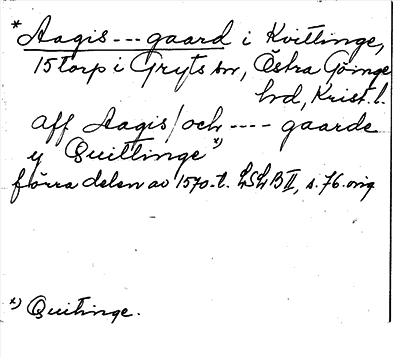 * Aagis --- gaard i Kvittinge,
15 torp i Gryts sn, Östra Göinge
hd, Krist. l.
aff Aagis/och ---- gaarde
y Quittinge *)
förra delen av 1570-t. LSLB II, s. 76. orig
*) Quitinge.